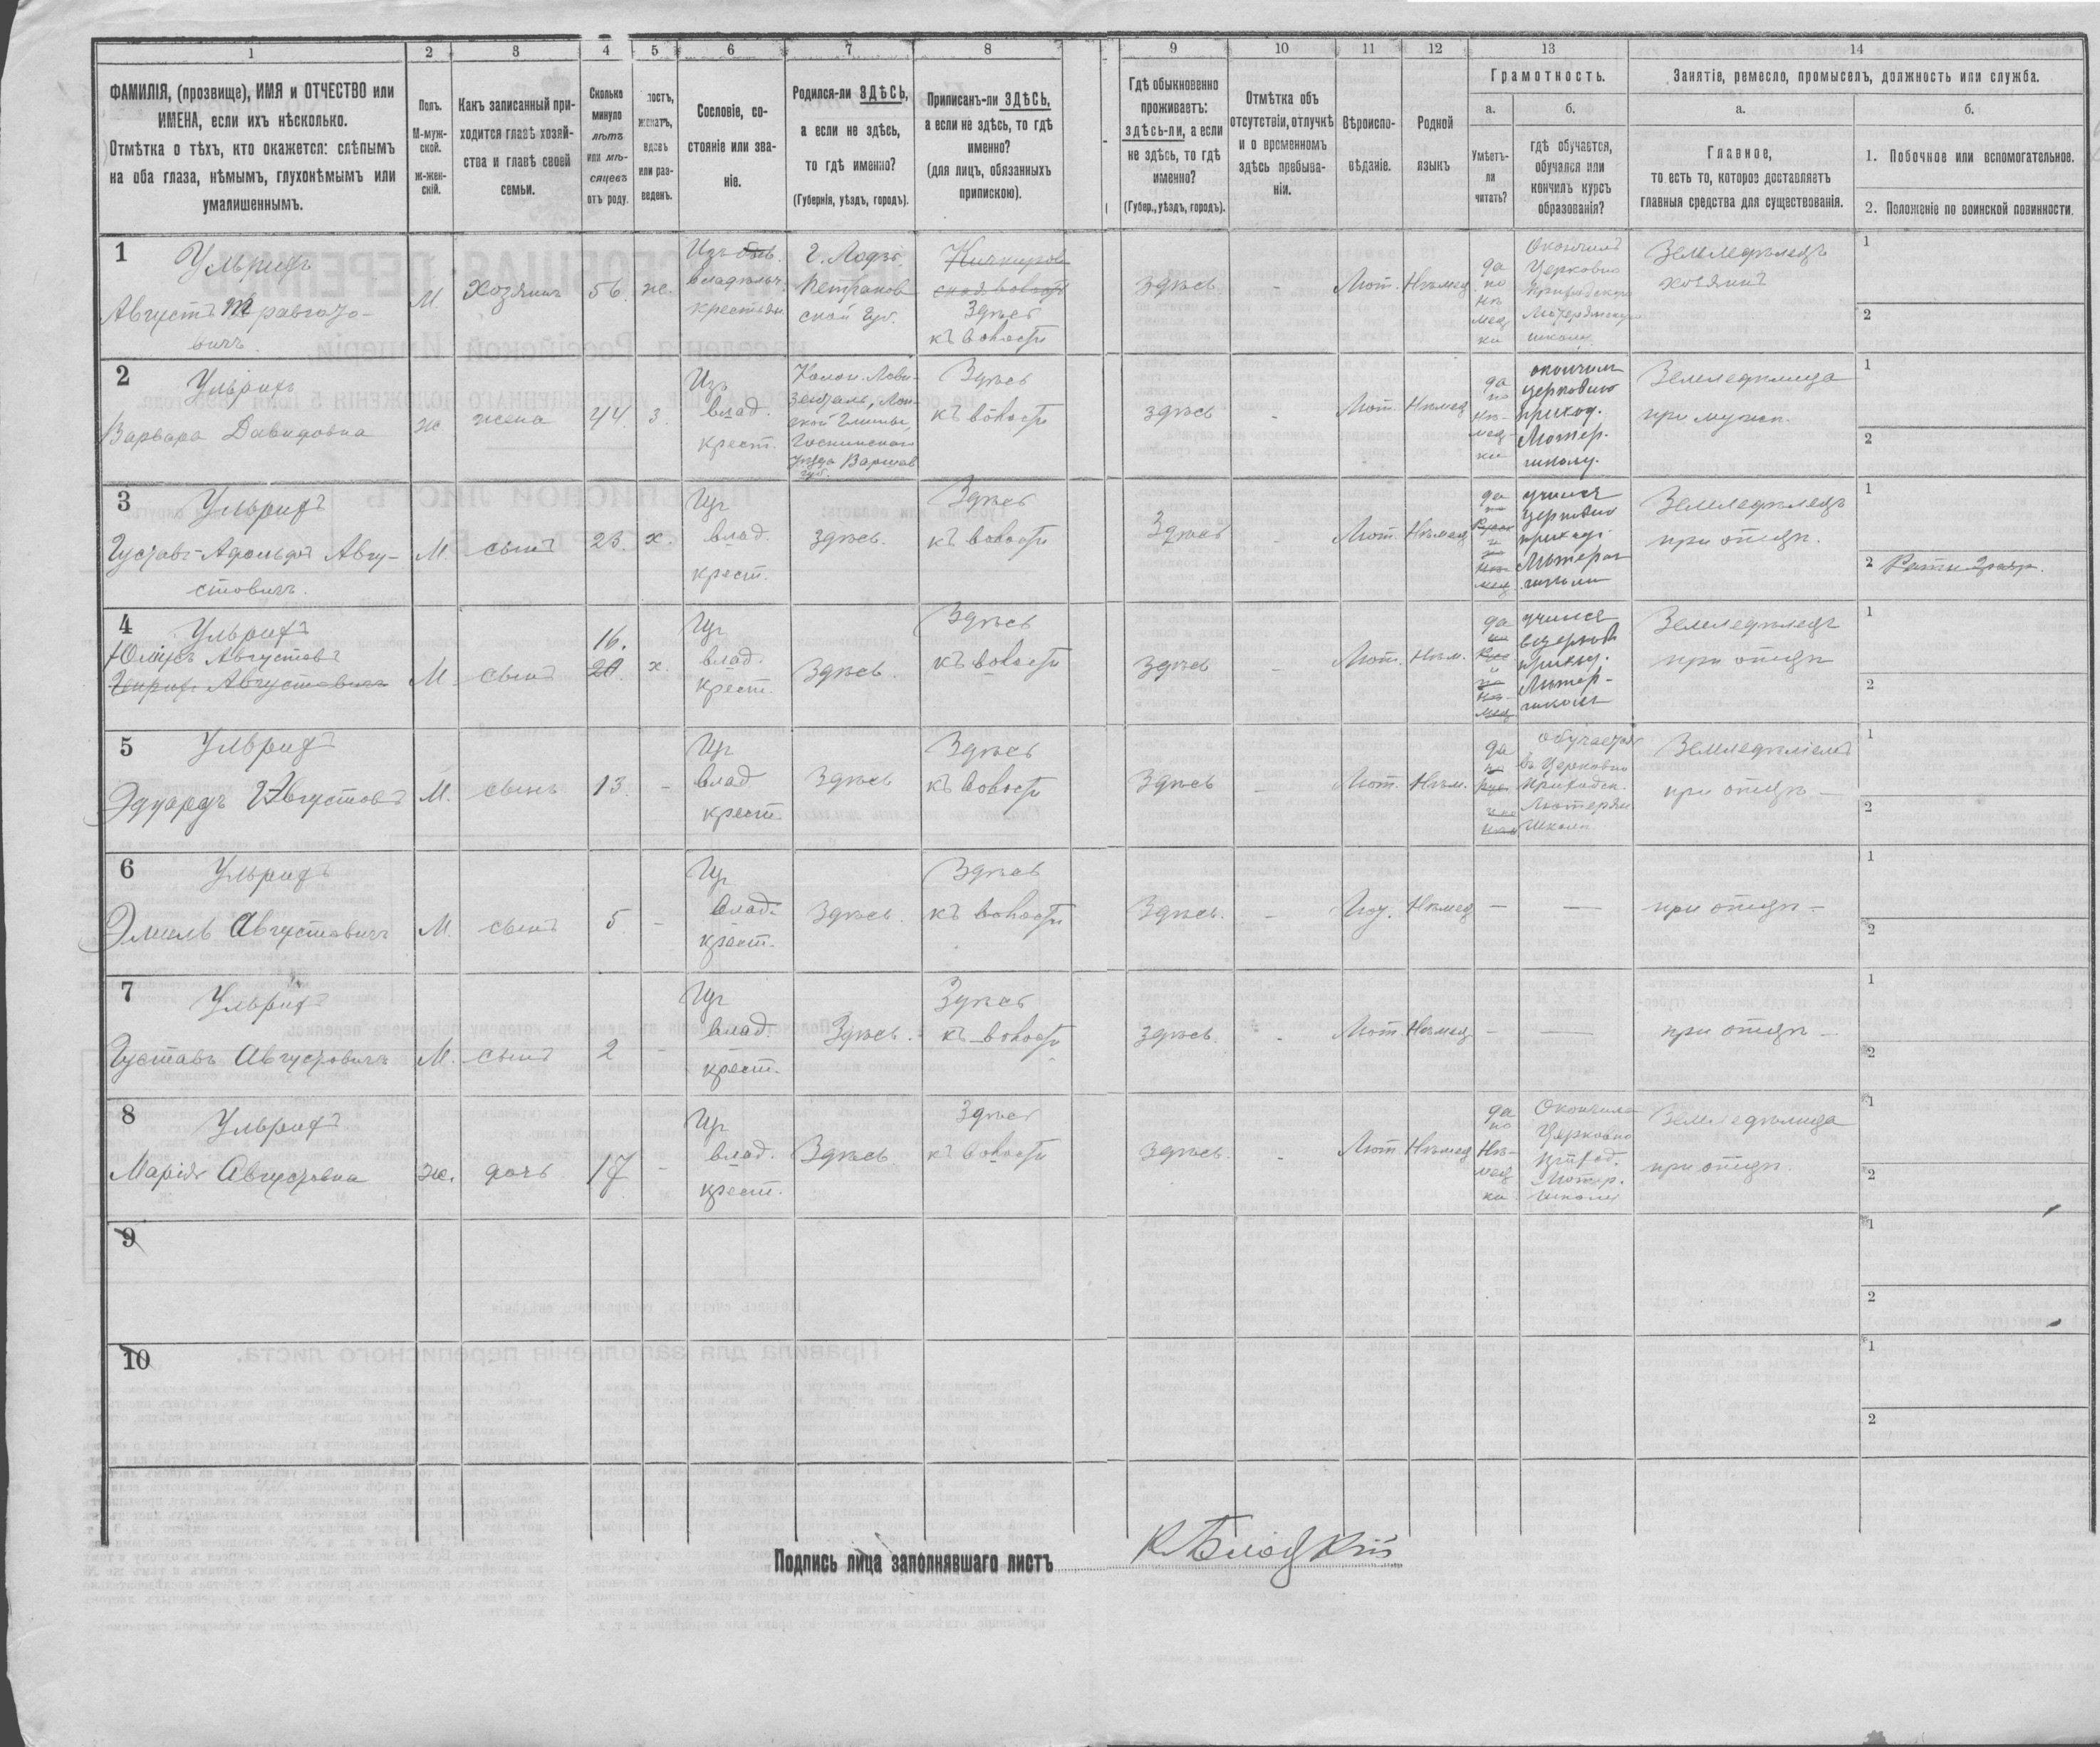 1 2 3 4 5 6 7 8 9 10 11 12 13 14
ФАМИЛІЯ, (прозвище), ИМЯ и ОТЧЕСТВО или
ИМЕНА, если ихъ нѣсколько.
Отмѣтка о тѣхъ, кто окажется: слѣпымъ
на оба глаза, нѣмымъ, глухонѣмымъ или
умалишеннымъ.
Полъ.
М-муж-
ской.
Ж-жен-
скій.
Какъ записанный при-
ходится главѣ хозяй-
ства и главѣ своей
семьи.
Сколько
минуло
лѣтъ
или мѣ-
сяцевъ
отъ роду.
лостъ,
женатъ,
вдовъ
или раз-
веденъ.
Сословіе, со-
стояніе или зва-
ніе.
Родился-ли ЗДѢСЬ,
а если не здѣсь,
то гдѣ именно?
(Губернія, уѣздъ, городъ).
Приписанъ-ли ЗДѢСЬ,
а если не здѣсь, то гдѣ
именно?
(для лицъ, обязанныхъ
припискою).
Гдѣ обыкновенно
проживаетъ:
здѣсь-ли, а если
не здѣсь, то гдѣ
именно?
(Губер., уѣздъ, городъ).
Отмѣтка объ
отсутствіи, отлучкѣ
и о временномъ
здѣсь пребыва-
ніи.
Вѣроиспо-
вѣданіе.
Родной
языкъ
Грамотность.
а.
Умѣетъ-
ли
читать?
б.
гдѣ обучается,
обучался или
кончилъ курсъ
образованія?
Занятіе, ремесло, промыселъ, должность или служба.
а.
Главное,
то есть то, которое доставляетъ
главныя средства для существованія.
б.
1. Побочное или вспомогательное.
2. Положеніе по воинской повинности.
1
Ульрихъ
Августъ
вичъ
М.
Хозяинъ
56.
же.
Изъ
владѣльч.
крестьян
г. Лодзь.
Петраков
ской губ.
Здѣсь
къ волости
Здѣсь.
-
Лют.
Нѣмец
да
по
нѣ
мец
ки
Окончилъ
Церковно
школу
Земледѣлецъ
хозяинъ
1
2
2
Ульрихъ
Варвара Давидовна
ж
жена
44.
з.
Изъ
влад.
крест.
уѣзда Варшав
губ.
Здѣсь
къ волости
здѣсь
-
Лют.
Нѣмец
да
по
нѣ-
мец-
ки
окончила
церковно
приход.
Лютер.
школу.
Земледѣлица
при мужѣ.
1
2
3
Ульрихъ
Густавъ-Адольфъ Авгу-
стовичъ.
М.
сынъ
23.
х.
Из
влад.
крест.
здѣсь.
Здѣсь
къ волости
Здѣсь
-
Лют.
Нѣмец
да
учился
церковно
приход.
Лютеран
школы
Земледѣлецъ
при отцѣ.
1
2
4
Ульрихъ
Юліусъ Августов
Генрих Августовичъ
М
сынъ
16.
20
х.
Из
влад.
крест.
Здѣсь.
Здѣсь
къ волости
Здѣсь
-
Лют.
Нѣм.
да
учился
приход.
Лютер-
школы
Земледѣлецъ
при отцѣ
1
2
5
Ульрихъ
Эдуардъ Августов
М.
сынъ
13.
-
Из
влад
крест.
Здѣсь
Здѣсь
къ волости
Здѣсь
-
Лют.
Нѣм.
да
обучается
въ Церковно
Приходск.
Лютеран.
школѣ
Земледѣлецъ
при отцѣ -
1
2
6
Ульрихъ
Эмиль Августовичъ
М.
сынъ
5
-
Из
влад.
крест.
Здѣсь.
Здѣсь
къ волости
Здѣсь.
-
Нѣмец
-
-
при отцѣ -
1
2
7
Ульрихъ
Густавъ Августовичъ
М.
сынъ
2
-
Из
влад.
крест.
Здѣсь.
Здѣсь
къ волости
здѣсь.
-
Лют.
Нѣмец
-
-
при отцѣ -
1
2
8
Ульрихъ
Марія Августовна
же.
дочь
17
-
Из
влад.
крест.
Здѣсь
Здѣсь
къ волости
здѣсь.
-
Лют.
Нѣмец
да
по
Нѣ-
мец
ки
Окончила
Церковно
приход.
Лютер.
школу
Земледѣлица
при отцѣ.
1
2
9
1
2
10
1
2
Подпись лица заполнявшаго листъ